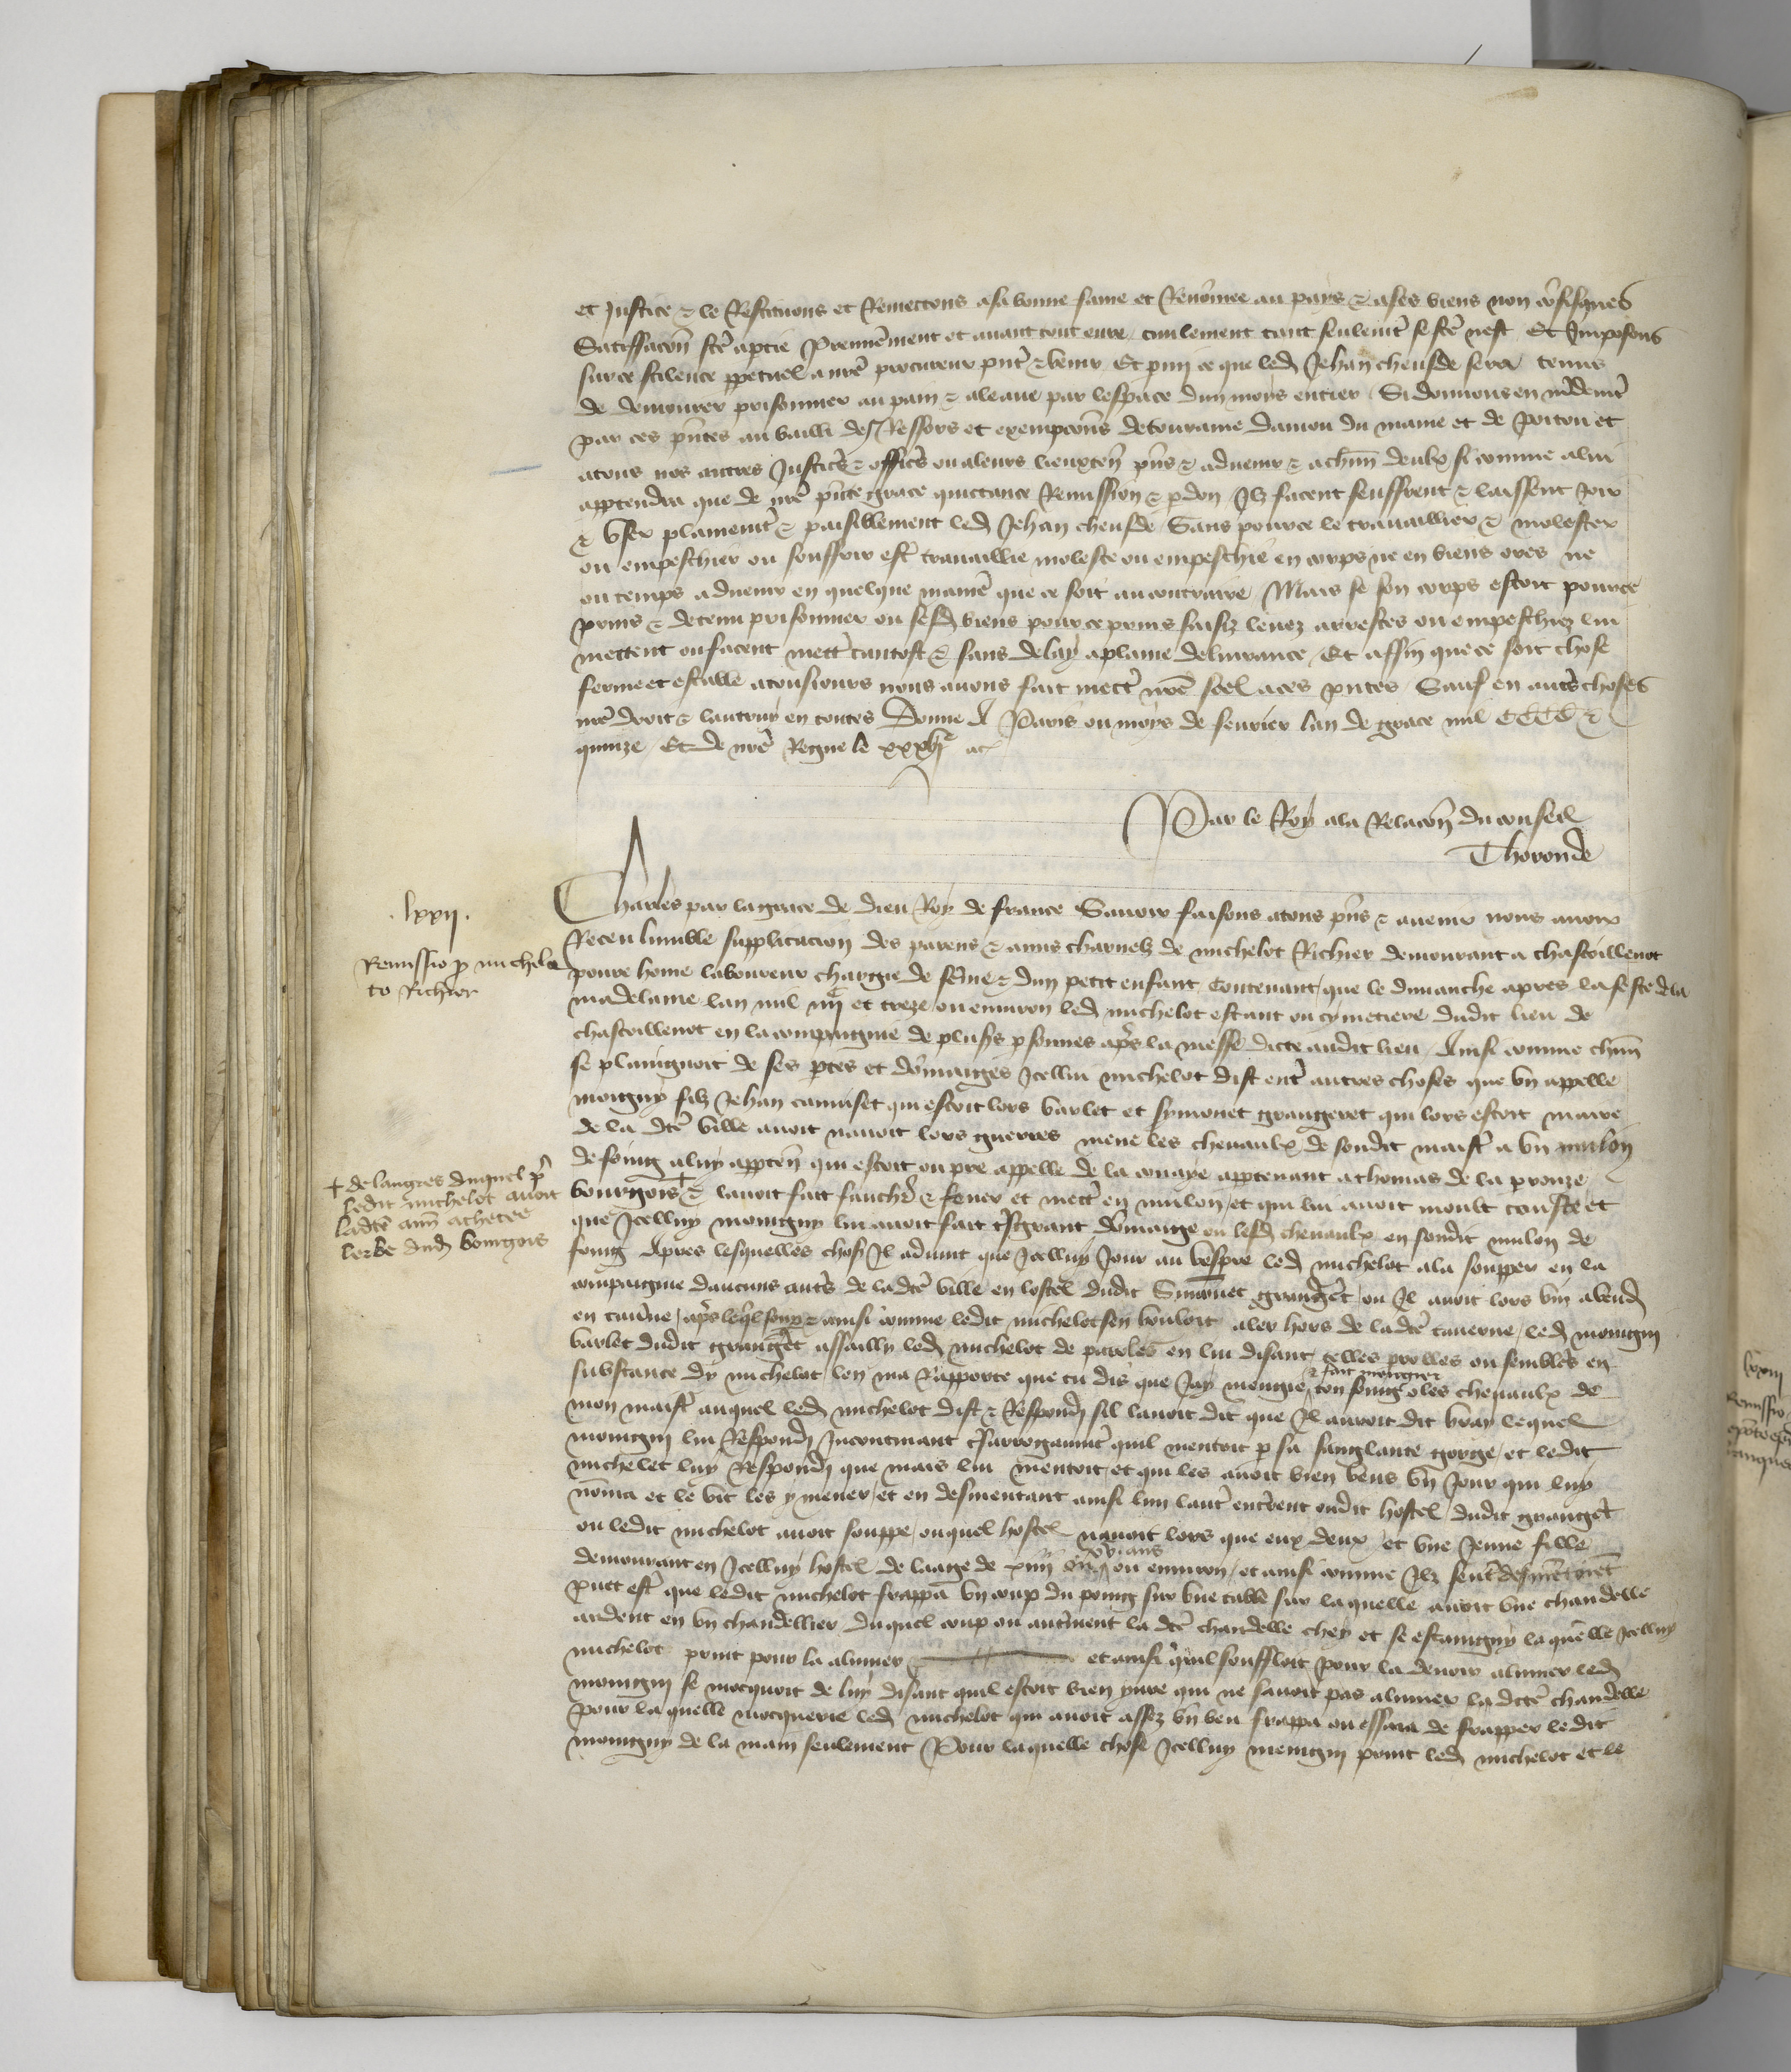 et justice & le Restituons et Remectons a sa bonne fame et Renōmee au pays & a ses biens non cōfisques
Satisfacōn fcē a ptie premieremēnt et auant tout euvre ciuilement tant seulemt se fcē nest Et Imposons
sur ce silence ppetuel a nrē procureur pnt & avenir Et pmi ce que led Jehan cheusde sera tenus
de demourer prisonnier au pain & a leaue par lespace dun mois entier Si donnons en mādemt
par ces pntes au bailli des Ressors et exempcōns de touraine danion du maine et de poitou et
a tous nos autres Justicrs & officrs ou a leurs lieuxten pns & aduenir & a chūn deulx si comme a lui
appartendra que de nrē pnte grace quictance Remission & pdon Ilz facent seuffrent & laissent Joir
& vser plainemt & paisiblement led Jehan cheusde Sans pour ce le trauaillier & molester
ou empeschier ou souffrir estr trauaillie moleste ou empeschie en corps ne en biens ores ne
ou temps aduenir en quelque maniē que ce soit au contraire Mais se son corps estoit pour ce
prins & detenu prisonnier ou sesd biens pour ce prins saisiz leuez arrestes ou empeschiez lui
mettent ou facent mettr tantost & sans delay a plaine deliurance Et affin que ce soit chose
ferme et estable a tousiours nous auons fait mectr nrē seel a ces pntes Sauf en autrs choses
nrē droit & lautruy en toutes Donne A Paris ou mois de feurier lan de grace mil CCCC &
quinze Et de nrē Regne le xxxvje
Par le Roy a la Relacōn du conseil
Thoronde
.lxxij.
Remissio p michele
to Richier
Charles par la grace de dieu Roy de france Sauoir faisons a tous pns & auenir nous auoir
Receu lumble supplicacion des parens & amis charnelz de michelot Richier demourant a chastillenot
poure home laboureur chargie de fēme & dun petit enfant Contenant que le dimanche apres la feste de la
madelaine lan mil iiijC et treze ou enuiron led michelot estant ou cymetiere dudit lieu de
chastillenot en la compaignie de plusrs psonnes aprs la messe dicte audit lieu Ainsi comme chūn
se plaingnoit de ses ptes et dōmaiges Icellui michelot dist entr autres choses que vn appelle
moigny filz Jehan camuset qui estoit lors varlet et symonet grangeret qui lors estoit maire
de la dcē ville auoit nauoit lors guerres mene les cheuaulx de sondit maistr a vn mulon
de foing a luy apptēn qui estoit ou pre appelle de la conaye apptenant a thomas de la pronze
bourgois + & lauoit fait fauchr & fener et mettr en mulon et qui lui auoit moult couste et
+ de langres duquel pr
ledit michelot auoit
ladcē ann achetee
lerbe dud bourgois
que Icelluy monigny lui auoit fait tsgrant dōmaige ou lesd cheuaulx en sondit mulon de
foing Apres lesquelles chosf Il aduint que Icelluy Jour au vespre led michelot ala soupper en la
compaignie daucuns autrs de ladcē ville en lostel dudit Simonet grangeret ou Il auoit lors vin a vend
en tauerne aprs leql soup & ainsi comme ledit michelot sen vouloit aler hors de ladcē tauerne led monigni
varlet dudit grangeret assailly led michelot de paroles en lui disant telles parolles ou semblēs en
substance dy michelot len ma Rapporte que tu dis que Jay mengie & fait mengier ton foing a les cheuaulx de
mon maistr auquel led michelot dist & Respondi sil lauoit dit que Il auoit dit vray lequel
monigni lui Respondi Incontinant tsarrogaumt quil mentoit p sa sanglante gorge et ledit
michelet luy Respondi que mais lui mentoit et qui les auoit bien veus vn Jour qui luy
nōma et le vit les y mener et en desmentant ainsi lun lautr entrerent oudit hostel dudit grangeret
ou ledit michelot auoit souppe ouquel hostel nauoit lors que eux deux et vne Jeune fille
demourant en Icelluy hostel de laage de xiiij ou xvj ans ou enuiron et ainsi comme Ilz sentrdesmentoiēt
puet estr que ledit michelot frappa vn coup du poing sur vne table sur laquelle auoit vne chandelle
ardent en vn chandellier duquel coup ou autrement la dcē chandelle chey et se estaingny laquelle Icelluy
michelot print pour la alumer et ainsi quil souffloit pour la deuoir alumer led
monigni se mocquoit de luy disant quil estoit bien yure qui ne sauoit pas alumer ladictē chandelle
pour laquelle mocquerie led michelot qui auoit assez vin beu frappa ou essaia de frapper ledit
monigny de la main seulement Pour laquelle chose Icelluy monigni print led michelot et le
lxxiij
Remissio